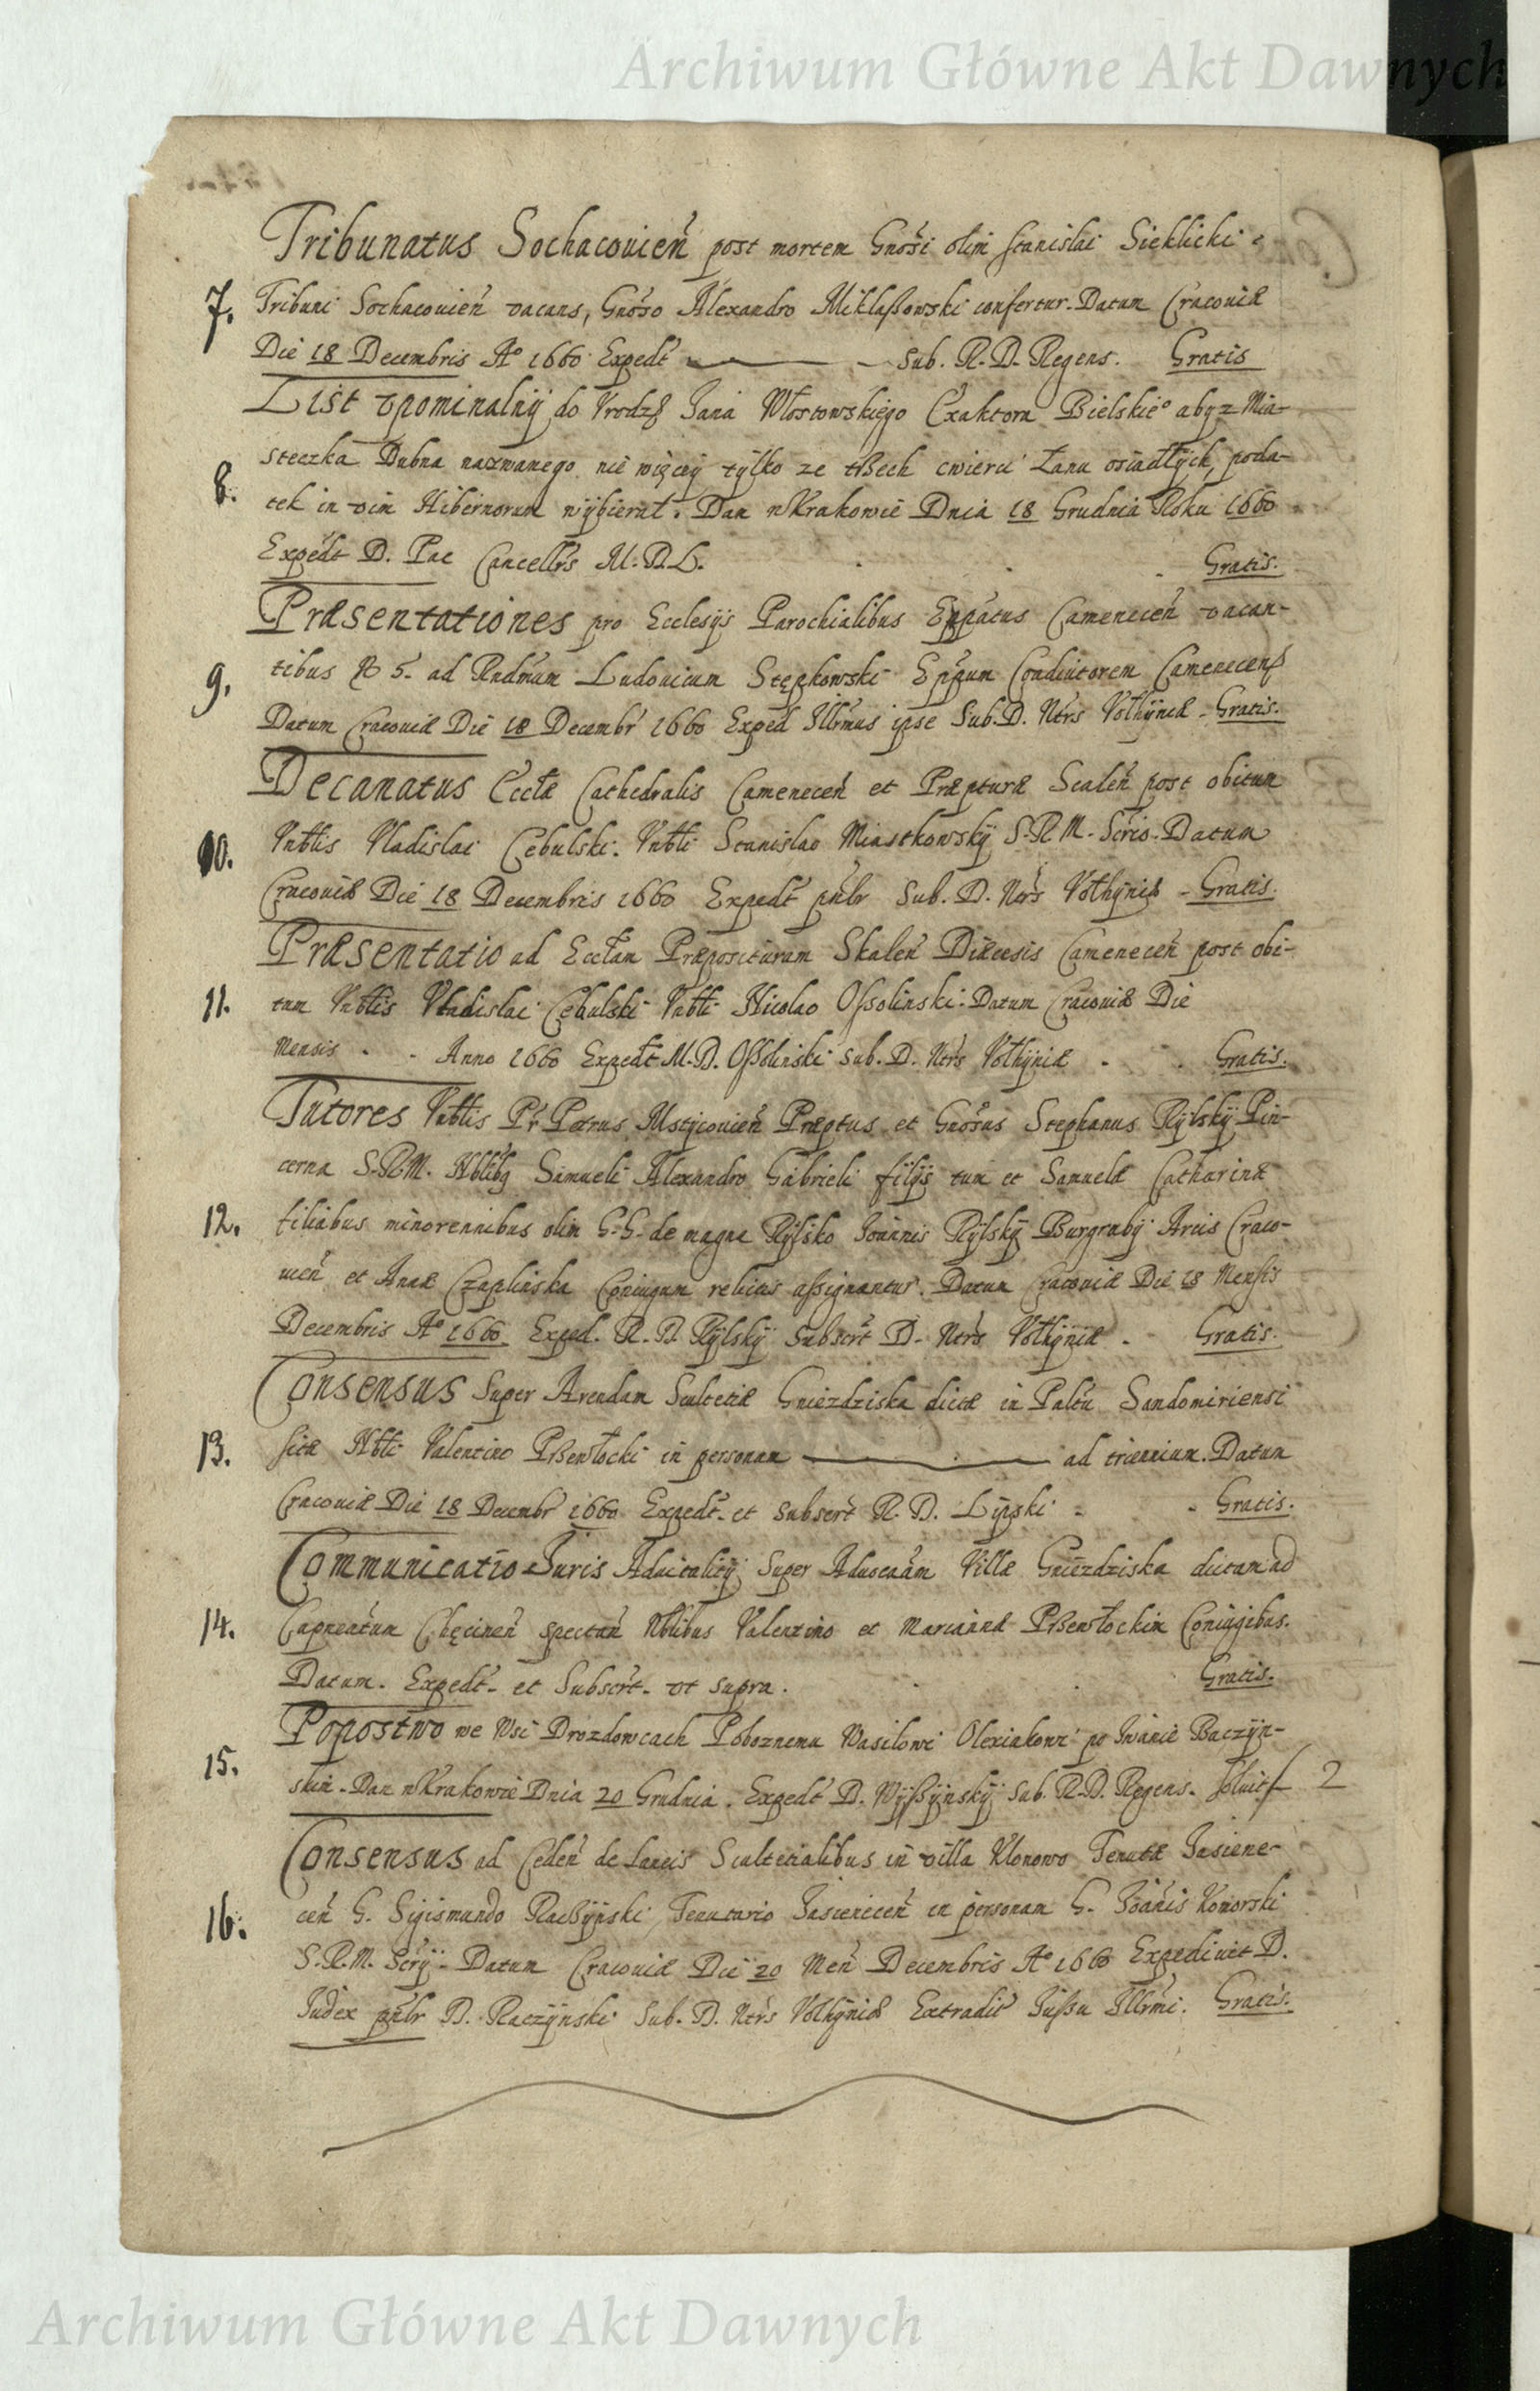 Archiwum Główne Akt Dawnych
Tribunatus Sochacovien̄ post mortem Gnosi olim Stanislai Sieklicki
7. Tribuni Sochacovien̄ vacans, Gnoso Alexandro Miklaszowski confertur. Datum Cracoviæ
Die 18 Decembris Aº 1660 Expedt Sub. R. D. Regens. Gratis
List vpominalny do Vrodz Jana Włostowskiego Exaktora Bielskieº aby z Mia-
8. steczka Dubna nazwanego nie więcey tylko ze trzech cwierci Łanu osiadłych, poda-
tek in vim Hibernorum wybierał. Dan w Krakowie Dnia 18 Grudnia Roku 1660
Expedt D. Pac Cancellrs M. D. L. Gratis.
Præsentationes pro Ecclesijs Parochialibus Eppatus Camenecen̄ vacan-
9. tibus 5. ad Rndmum Ludovicum Stępkowski Eppum Coadiutorem Camenecens
Datum Cracoviæ Die 18 Decembr 1660 Exped Illrmus ipse Sub. D. Ntrs Volhyniæ - Gratis.
Decanatus Eccłæ Cathedralis Camenecen̄ et Præpturæ Scalen̄ post obitum
10. Vnblis Vladislai Cebulski. Vnbli Stanislao Miastkowsky S. R. M. Scrio. Datum
Cracoviæ Die 18 Decembris 1660 Expedt pnlr Sub. D. Ntrs Volhyniæ - Gratis.
Præsentatio ad Eccłam Præposituram Skalen̄ Diæcesis Camenecen̄ post obi-
11. tum Vnblis Vladislai Cebulski Vnbli Nicolao Ossolinski. Datum Cracoviæ Die
Mensis . . Anno 1660 Expedt M. D. Ossolinski Sub. D. Ntrs Volhyniæ . . Gratis.
Tutores Vnblis Pr Petrus Mstycovien̄ Præptus et Gnosus Stephanus Rylsky Pin-
cerna S. R. M. Nblibq Samueli Alexandro Gabrieli filijs tum et Samuelæ Catharinæ
12. filiabus minorennibus olim G. G. de magna Rylsko Joannis Rylsky Burgraby Arcis Craco-
vien̄ et Annæ Czaplinska Coniugum relictis assignantur. Datum Cracoviæ Die 18 Mensis
Decembris Aº 1660. Exped. R. D. Rylsky Subscrt D. Ntrs Volhyniæ - Gratis.
Consensus Super Arendam Scultetiæ Gniezdziska dictæ in Paltu Sandomiriensi
13. sitæ Nbli Valentino Przewłocki in personam ad triennium. Datum
Cracoviæ Die 18 Decembr 1660 Expedt. et Subscrt R. D. Lipski - - Gratis.
Communicatio Juris Aduitalitij Super Aduocatam Villæ Gniezdziska dictam ad
14. Capneatum Chęcinen̄ spectan̄ Nblibus Valentino et Mariannæ Przewłockim Coniugibus.
Datum. Expedt. et Subscrt. vt supra. Gratis.
Popostwo we Wsi Drozdowcach Poboznemu Wasilowi Olexiakowi po Iwanie Baczyn-
15. skim. Dan w Krakowie Dnia 20 Grudnia. Expedt D. Wyszynsky Sub. R. D. Regens. soluit f 2
Consensus ad Ceden̄ de Laneis Scultetialibus in villa Klonowo Tenutæ Jasiene-
16. cen̄ G. Sigismundo Raczynski Tenutario Jasienicen̄ in personam G. Joanis Komorski
S. R. M. Scrij. Datum Cracoviæ Die 20 Men̄ Decembris Aº 1660 Expediuit D.
Judex pnlr D. Raczynski Sub. D. Ntrs Volhyniæ Extradit Jussu Illrmi. Gratis.
Archiwum Główne Akt Dawnych